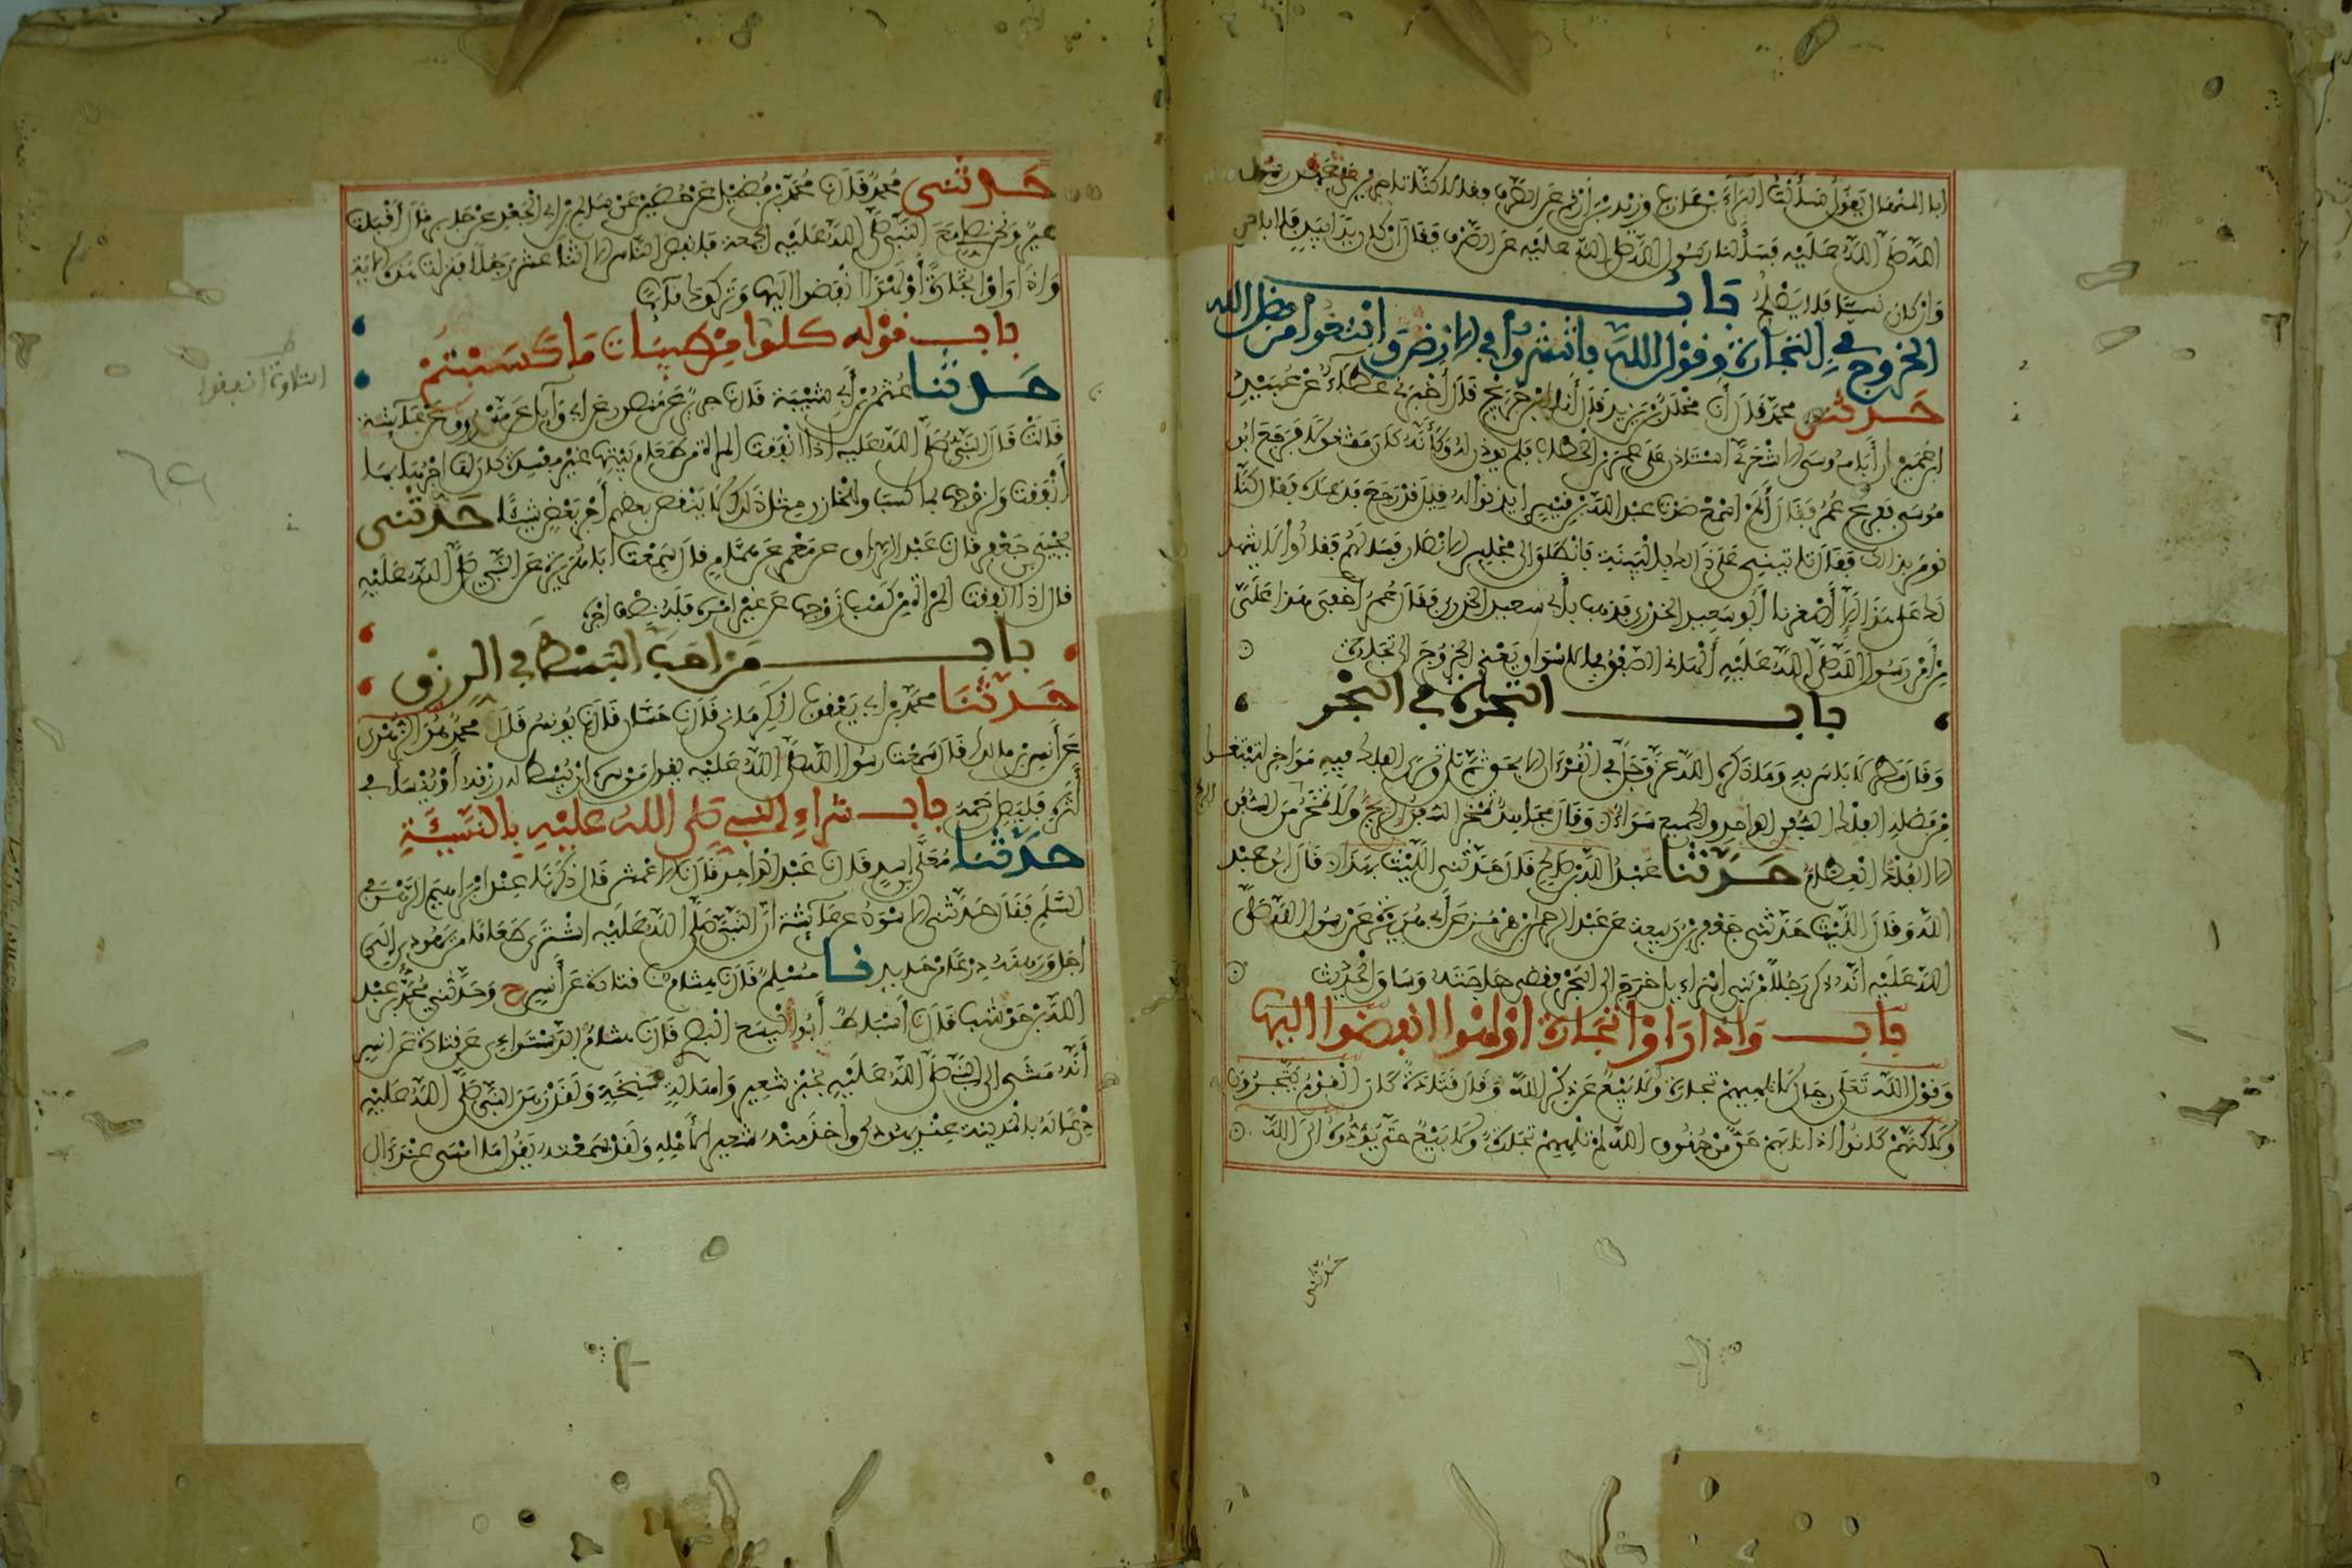 ابا المنهال يقول سألت البراء بن عازب وزيد بن أرقم عن الصرف فقالا كنا تاجرين على عهد رسول
الله صلى الله عليه فسألنا رسول الله صلى الله عليه عن الصرف فقال ان كان يدا بيد فلا باس
وان كان نسيا فلا يصلح باب
الخروج في التجارة وقول الله فانتشروا في الارض وابتغوا من فضل الله
حدثنى محمد قال أنا مخلد بن يزيد قال أنا ابن جريج قال أخبرنى عطاء عن عبيد بن
عمير أن أبا موسى الاشعرى استاذن على عمر بن الخطاب فلم يوذن له وكأنه كان مشغولا فرجع ابو
موسى ففرغ عمر فقال ألم اسمع صوت عبد الله بن قيس ايذنوا له قيل قد رجع فدعاه فقال كنا
نومر بذلك فقال تاتينى على ذلك بالبينة فانطلق الى مجلس الانصار فسالهم فقالوا لا يشهد
لك على هذا الا أصغرنا أبو سعيد الخدرى فذهب بأبى سعيد الخدرى فقال عمر أخفى هذا على
من أمر رسول الله صلى الله عليه ألهانى الصفق بالاسواق يعنى الخروج الى تجارة
باب التجارة في البحر
وقال مطر لا باس به وما ذكره الله عز وجل في القرءان الا بحق ثم تلا وترى الفلك فيه مواخر لتبتغوا
من فضله الفلك السفن الواحد والجميع سواء وقال مجاهد تمخر السفن الريح ولا تمخر من السفن الريح
الا الفلك العظام حدثنا عبد الله بن صالح قال حدثنى الليث بهذا قال ابو عبد
الله وقال الليث حدثنى جعفر بن ربيعة عن عبد الرحمن بن هرمز عن أبى هريرة عن رسول الله صلى
الله عليه أنه ذكر رجلا من بنى اسراءيل خرج الى البحر فقضى حاجته وساق الحديث
باب واذا راوا تجارة او لهوا انفضوا اليها
وقول الله تعلى رجال لا تلهيهم تجارة ولا بيع عن ذكر الله وقال قتادة كان القوم يتجرون
ولاكنهم كانوا اذا نابهم حق من حقوق الله لم تلههم تجارة ولا بيع حتى يؤدوه الى الله
حدثنى
حدثنى محمد قال نا محمد بن فضيل عن حصين عن سالم بن ابى الجعد عن جابر قال أقبلت
عير ونحن نصلى مع النبى صلى الله عليه الجمعة فانفض الناس الا اثنا عشر رجلا فنزلت هذه الاية
واذا راوا تجارة أو لهوا انفضوا اليها وتركوك قائما
باب قوله كلوا من طيبات ما كسبتم
حدثنا عثمن بن أبى شيبة قال نا جرير عن منصور عن ابى وايل عن مسروق عن عائشة
قالت قال النبى صلى الله عليه اذا انفقت المراة من طعام بيتها غير مفسدة كان لها اجرها بما
أنفقت ولزوجها بما كسب وللخازن مثل ذلك لا ينقص بعضهم أجر بعض شيئا حدثنى
يحيى بن جعفر قال نا عبد الرزاق عن معمر عن همام قال سمعت ابا هريرة عن النبى صلى الله عليه
قال اذا انفقت المراة من كسب زوجها عن غير امره فله نصف اجره
باب من احب البسط في الرزق
حدثنا محمد بن ابى يعقوب الكرمانى قال نا حسان قال نا يونس قال محمد هو الزهرى
عن أنس بن مالك قال سمعت رسول الله صلى الله عليه يقول من سره ان يبسط له رزقه أو ينسأ في
أثره فليصل رحمه باب شراء النبي صلى الله عليه بالنسيئة
حدثنا معلى بن اسد قال نا عبد الواحد قال نا الاعمش قال ذكرنا عند ابراهيم الرهن في
السلم فقال حدثنى الاسود عن عائشة أن النبى صلى الله عليه اشترى طعاما من يهودى الى
أجل ورهنه درعا من حديد نا مسلم قال نا هشام نا قتادة عن أنس ح وحدثنى محمد بن عبد
الله بن حوشب قال نا أسباط أبو اليسع البصرى قال نا هشام الدستواءى عن قتادة عن انس
أنه مشى الى النبى صلى الله عليه بخبز شعير واهالة سنخة ولقد رهن النبى صلى الله عليه
درعا له بالمدينة عند يهودى وأخذ منه شعيرا لأهله ولقد سمعته يقول ما امسى عند ءال